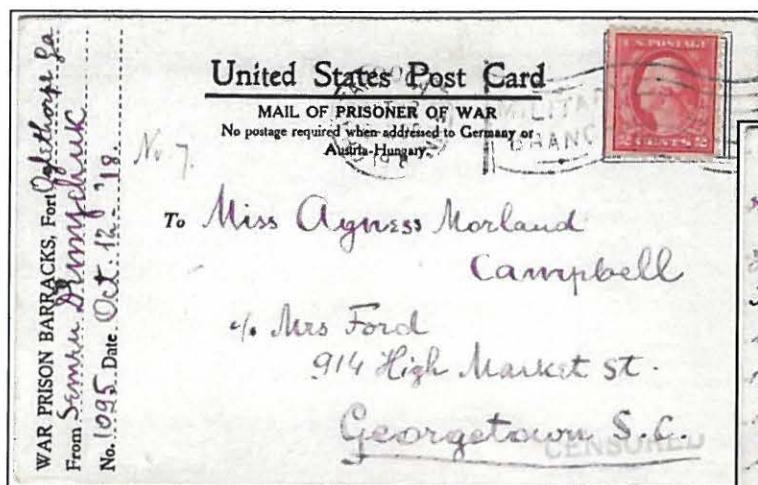 WAR PRISON BARRACKS, Fort Oglethorpe Ga
From Semen Demydchuk
No. 1095 Date Oct. 12 - '18.
United States Post Card
MAIL OF PRISONER OF WAR
No postage required when addressed to Germany or
Austria-Hungary.
No 7.
MILITARY
BRANCH
U.S. POSTAGE
2 CENTS 2
To Miss Agness Morland
Campbell
c/o Mrs Ford
914 High Market St.
Georgetown S.C.
CENSORED